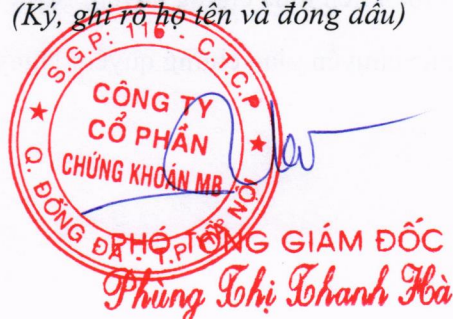 (Ký, ghi rõ họ tên và đóng dấu)
S.G.P: 116 - C.T.C.P
CÔNG TY
CỔ PHẦN
CHỨNG KHOÁN MB
Q. ĐỐNG ĐA - T.P HÀ NỘI
PHÓ TỔNG GIÁM ĐỐC
Phùng Thị Thanh Hà